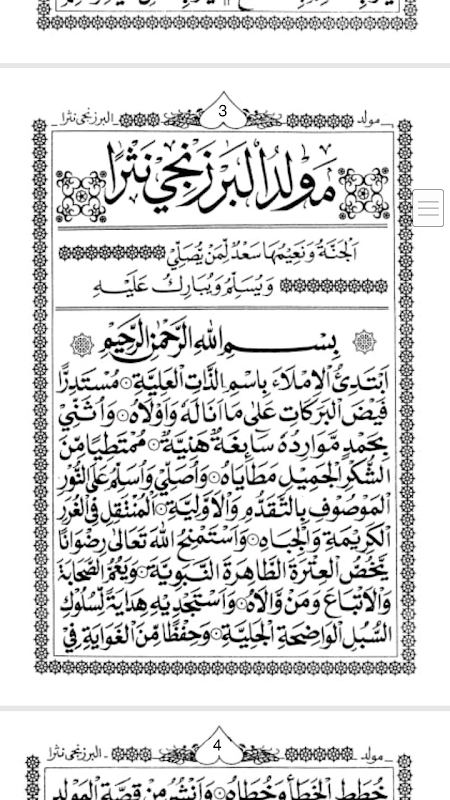 مولد
3
البرزنجي نثرا
مَوْلِدُ الْبَرْزَنْجِي نَثْرًا
اَلْجَنَّةُ وَنَعِيْمُهَا سَعْدٌ لِمَنْ يُصَلِّيْ
وَيُسَلِّمُ وَيُبَارِكُ عَلَيْهِ
بِسْمِ اللهِ الرَّحْمٰنِ الرَّحِيْمِ
اَبْتَدِئُ الْاِمْلَاءَ بِاسْمِ الذَّاتِ الْعَلِيَّةِ۞ مُسْتَدِرًّا
فَيْضَ الْبَرَكَاتِ عَلٰى مَا اَنَالَهُ وَاَوْلَاهُ۞ وَاُثَنِّيْ
بِحَمْدٍ مَّوَارِدُهُ سَائِغَةٌ هَنِيَّةٌ۞ مُمْتَطِيًا مِّنَ
الشُّكْرِ الْجَمِيْلِ مَطَايَاهُ۞ وَاُصَلِّيْ وَاُسَلِّمُ عَلَى النُّوْرِ
الْمَوْصُوْفِ بِالتَّقَدُّمِ وَالْاَوَّلِيَّةِ۞ الْمُنْتَقِلِ فِى الْغُرَرِ
الْكَرِيْمَةِ وَالْجِبَاهِ۞ وَاَسْتَمْنِحُ اللهَ تَعَالٰى رِضْوَانًا
يَّخُصُّ الْعِتْرَةَ الطَّاهِرَةَ النَّبَوِيَّةَ۞ وَيَعُمُّ الصَّحَابَةَ
وَالْاَتْبَاعَ وَمَنْ وَّالَاهُ۞ وَاَسْتَجْدِيْهِ هِدَايَةً لِسُلُوْكِ
السُّبُلِ الْوَاضِحَةِ الْجَلِيَّةِ۞ وَحِفْظًا مِّنَ الْغَوَايَةِ فِيْ
مولد
4
البرزنجي نثرا
خُطَطِ الْخَطَأِ وَخُطَاهُ۞ وَاَنْشُرُ مِنْ قِصَّةِ الْمَوْلِدِ